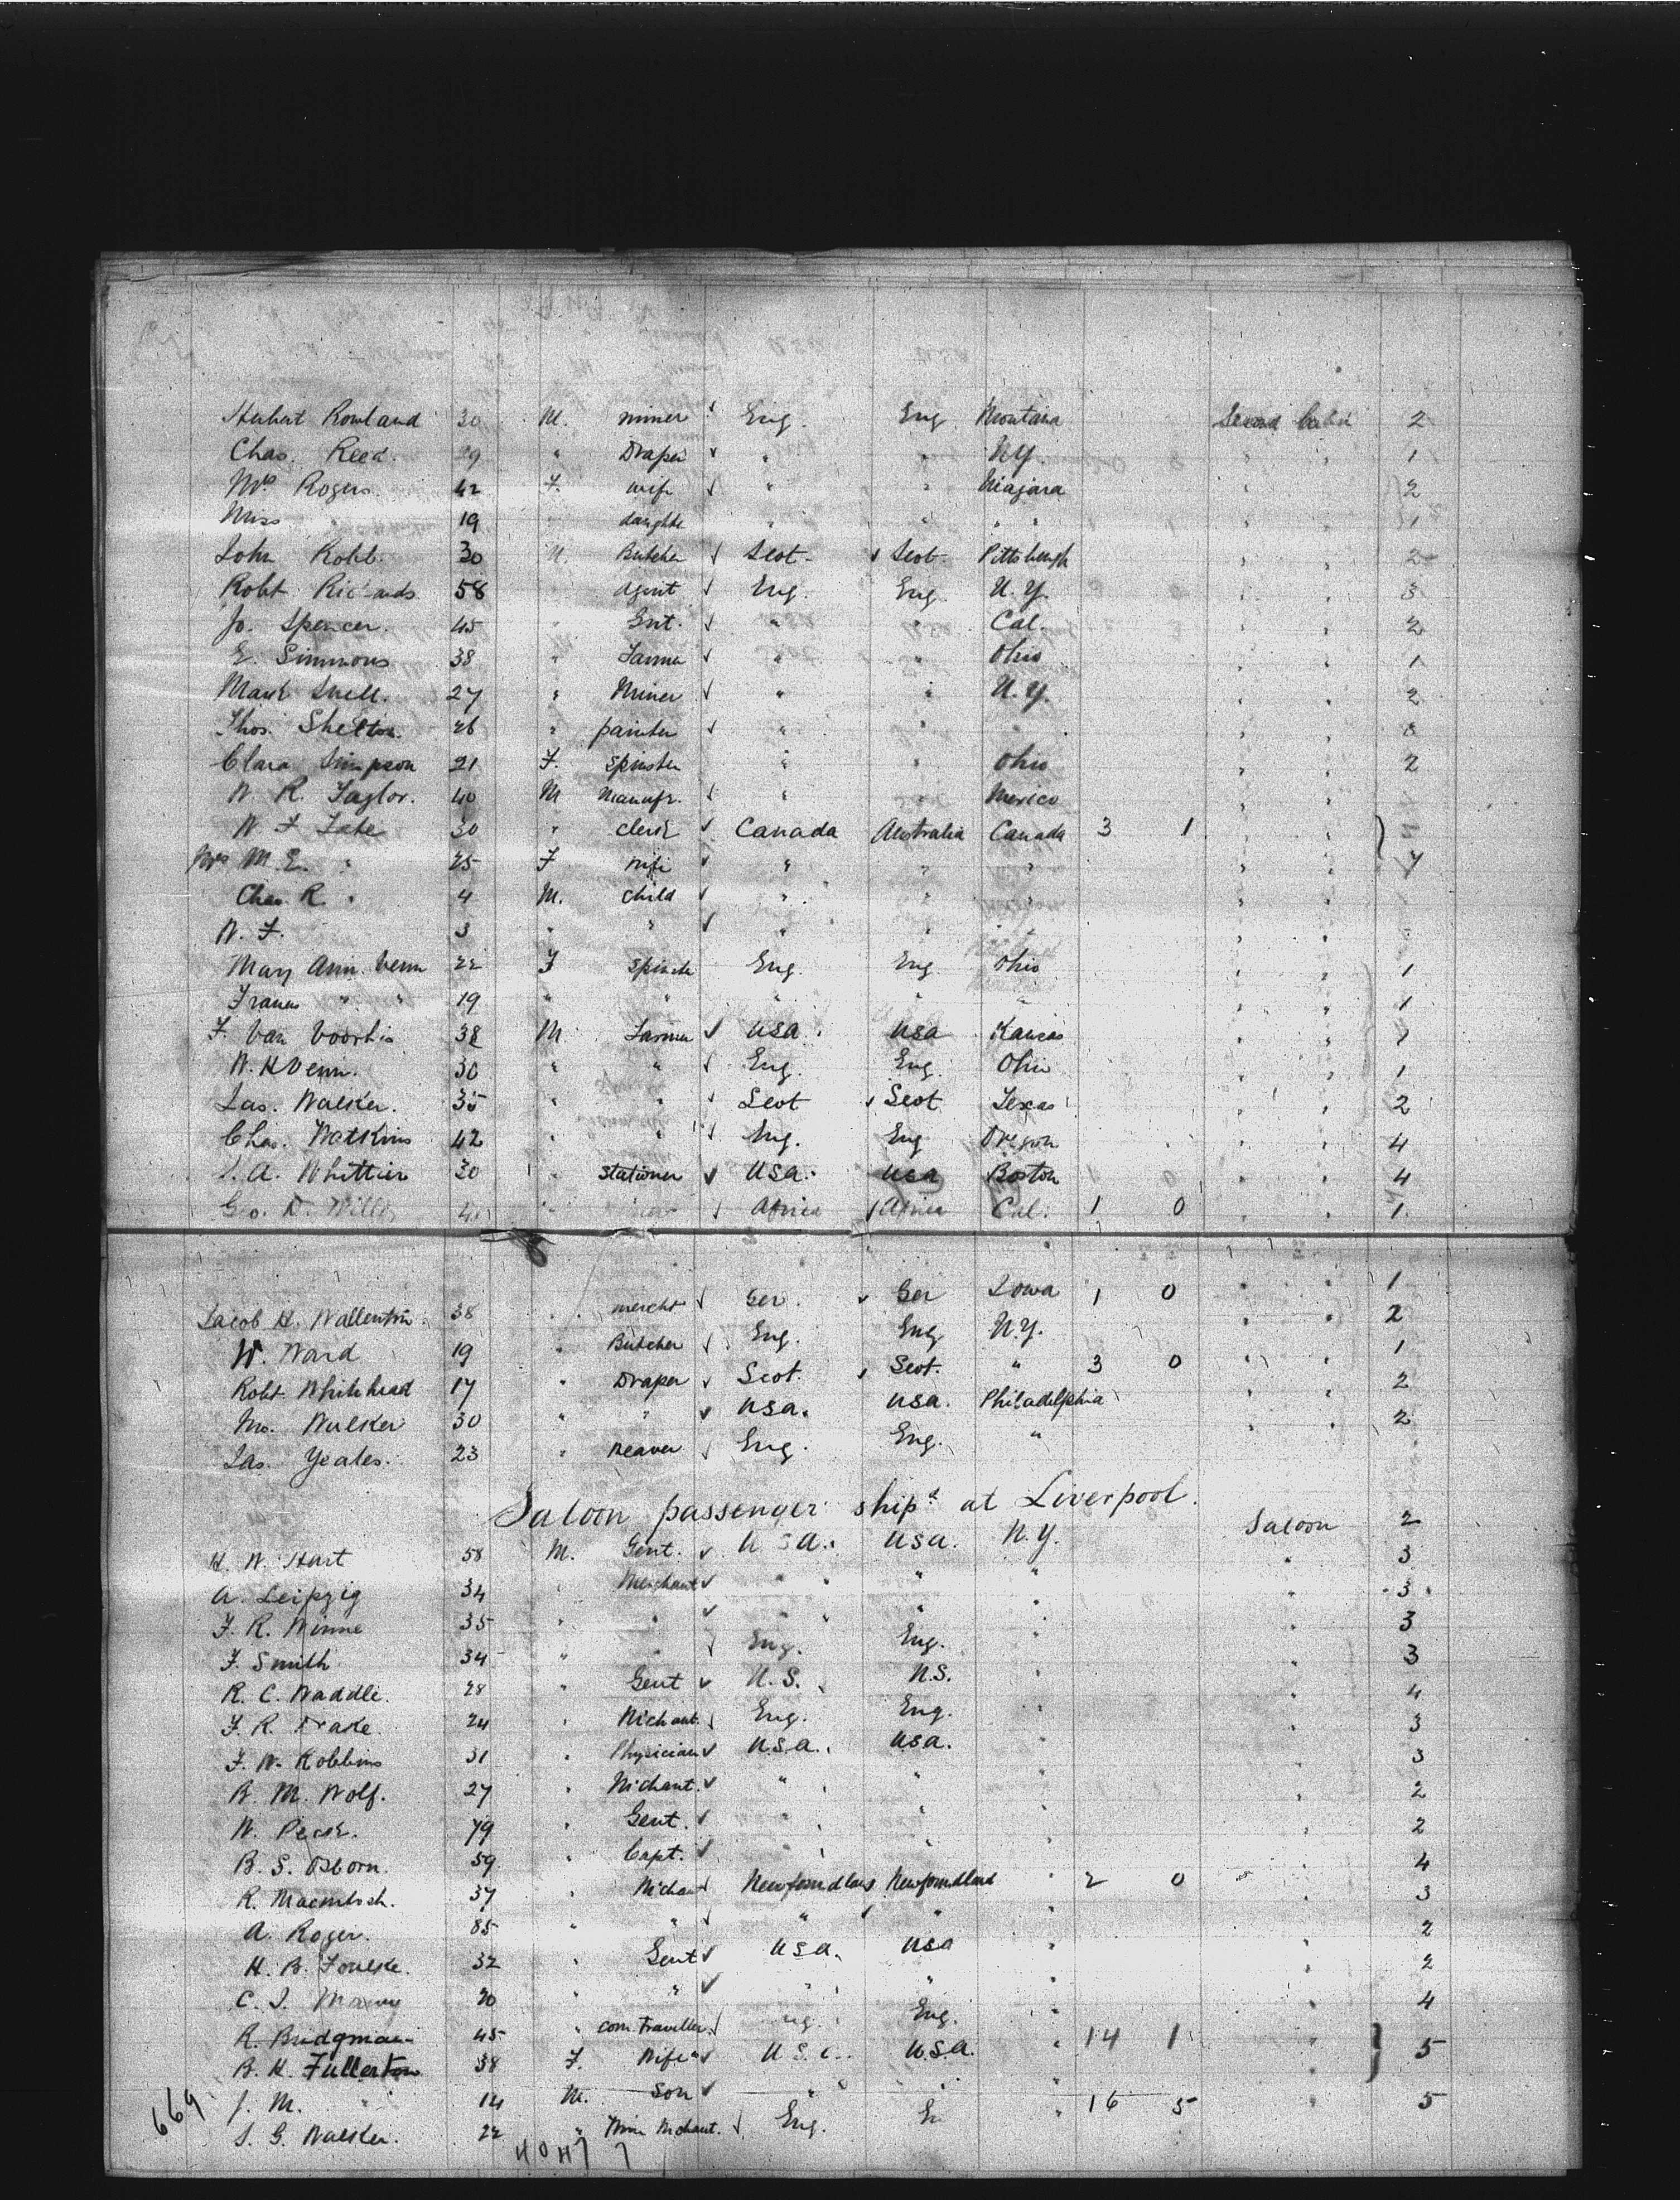 Herbert Rowland 30 M. miner Eng. Eng Montana Second Cabin 2
Chas. Reed. 29 " Draper " " N.Y. " " 1
Mrs Rogers. 42 F. wife " " Niagara " " 2
Miss " 19 " daughter " " " " " " 1
John Robb. 30 M. Butcher Scot- Scot- Pittsburgh " " 2
Robt Richards 58 " agent Eng. Eng N.Y. " " 3
Jo. Spencer. 45 " Gnt. " " Cal. " " 2
E. Simmons 38 " Farmer " " Ohio " " 1
Mark Snell. 27 " Miner " " N.Y. " " 2
Thos. Shelton. 26 " painter " " " " "
Clara Simpson 21 F. Spinster " " Ohio " " 2
W. R. Taylor. 40 M Manufr. " " Mexico " "
W F Tate 30 " clerk Canada Australia Canada 3 1 " "
Mrs M. E. " 25 F wife " " " " " 7
Chas. R. " 4 M. child " " " " "
W. F. 3 " " " " " " "
Mary Ann Venn 22 F Spinster Eng. Eng Ohio " " 1
Frances " " 19 " " " " " " " 1
F. Van Voorhis 38 M Farmer USA. USA Kansas " "
W. H Venn. 30 " " Eng. Eng. Ohio " " 1
Jas. Walker. 35 " " Scot Scot Texas " " 2
Chas. Watkins 42 " " Eng. Eng Oregon " " 4
S. A. Whittier 30 " Stationer USA. USA Boston " " 4
Geo. D. Africa Africa Cal. 1 0 " " 1
Jacob H. 38 " mercht Ger. Ger Iowa 1 0 " " 1
W. Ward 19 " Butcher Eng. Eng N.Y. " " 2
Robt Whitehead 17 " Draper Scot. Scot. " 3 0 " " 1
Jno. Walker 30 " " USA. USA. Philadelphia " " 2
Jas. Yeates. 23 " Weaver Eng. Eng. " " " 2
Saloon passenger shipd at Liverpool.
H. W. Hart 58 M. Gent. U S A. USA. N.Y. Saloon 2
A. Leipzig 34 " Merchant " " " " 3
F. R. Winne 35 " " " " " " 3
F. Smith 34 " " Eng. Eng. " " 3
R. C. Waddle. 28 " Gent U.S. U.S. " " 3
F. R. Drake. 24 " Mchant. Eng. Eng. " " 4
F. W. Robbins 31 " Physician U.S.A. USA. " " 3
B. M. Wolf. 27 " Mchant. " " " " 3
W. Peck. 79 " Gent. " " " " 2
B. S. Osborn. 59 " Capt. " " " " 2
R. Macintosh. 37 " Mchant Newfoundland Newfoundland " 2 0 " 4
A. Roger. " " " " " " 3
H. B. Foulke. 32 " Gent USA. USA " " 2
C. J. " " " " " " 2
R. Bridgman 45 " com. traveller Eng. Eng. " " 4
B. H. Fullerton 38 F. Wife U S A. U.S.A. " 14 1 " 5
J. M. " 14 M. Son " " " "
S. G. Walker. 22 " Wine Mchant. Eng. " 16 5 " 5
669